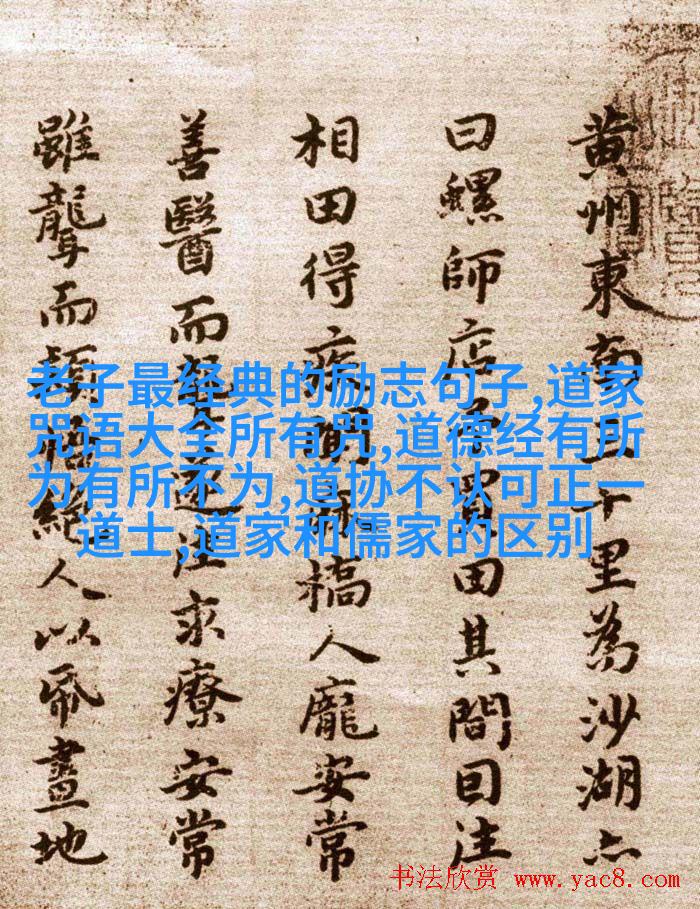 黄州東南三十里為沙湖亦
曰螺師店予買田其間因往
相田得疾聞麻橋人龐安常
善醫而聾遂往求療安常
雖聾而穎悟絕人以紙畫地
老子最经典的励志句子,道家
咒语大全所有咒,道德经有所
为有所不为,道协不认可正一
道士,道家和儒家的区别
书法欣赏 www.yac8.com